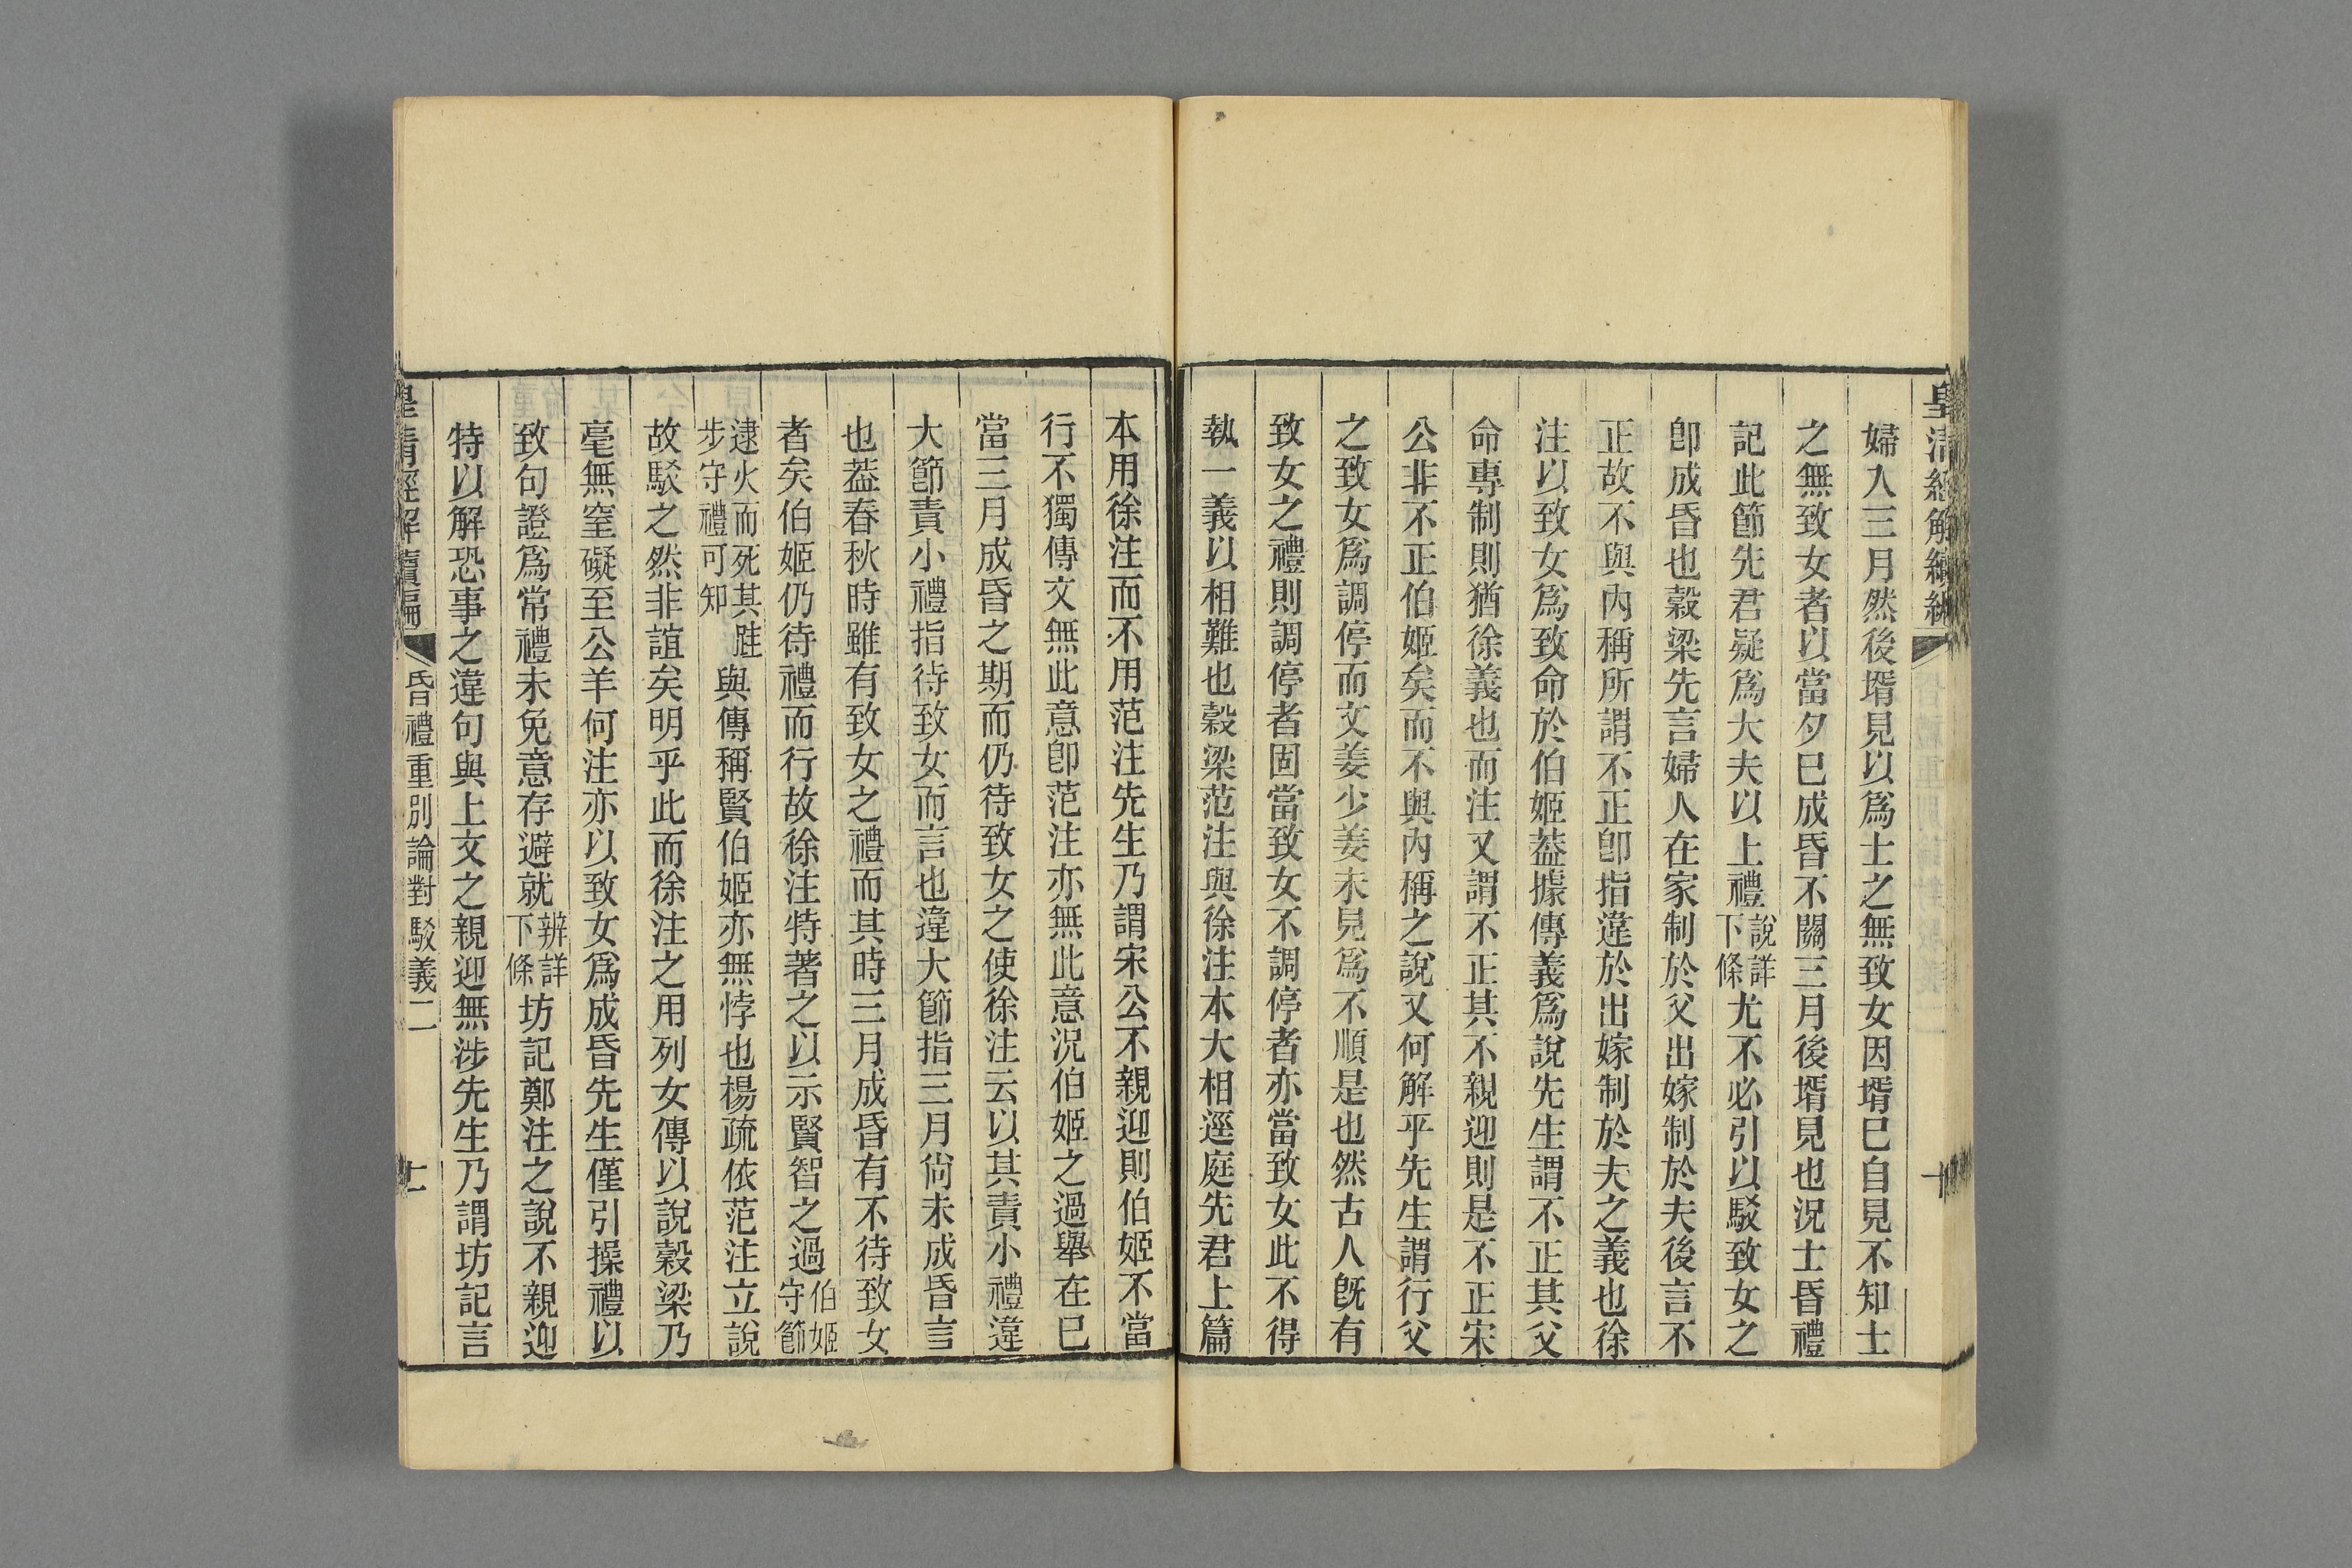 皇清經解續編
十
婦入三月然後壻見以爲士之無致女因壻巳自見不知士
之無致女者以當夕巳成昏不關三月後壻見也況士昏禮
記此節先君疑爲大夫以上禮說詳下條尤不必引以駁致女之
卽成昏也穀梁先言婦人在家制於父出嫁制於夫後言不
正故不與內稱所謂不正卽指違於出嫁制於夫之義也徐
注以致女爲致命於伯姬葢據傳義爲說先生謂不正其父
命專制則猶徐義也而注又謂不正其不親迎則是不正宋
公非不正伯姬矣而不與內稱之說又何解乎先生謂行父
之致女爲調停而文姜少姜未見爲不順是也然古人旣有
致女之禮則調停者固當致女不調停者亦當致女此不得
執一義以相難也穀梁范注與徐注本大相逕庭先君上篇
本用徐注而不用范注先生乃謂宋公不親迎則伯姬不當
行不獨傳文無此意卽范注亦無此意況伯姬之過舉在巳
當三月成昏之期而仍待致女之使徐注云以其責小禮違
大節責小禮指待致女而言也違大節指三月尙未成昏言
也葢春秋時雖有致女之禮而其時三月成昏有不待致女
者矣伯姬仍待禮而行故徐注特著之以示賢智之過伯姬守節
逮火而死其跬步守禮可知與傳稱賢伯姬亦無悖也楊疏依范注立說
故駁之然非誼矣明乎此而徐注之用列女傳以說穀梁乃
毫無窒礙至公羊何注亦以致女爲成昏先生僅引操禮以
致句證爲常禮未免意存避就辨詳下條坊記鄭注之說不親迎
特以解恐事之違句與上文之親迎無涉先生乃謂坊記言
皇清經解續編
昏禮重別論對駁義二
十一